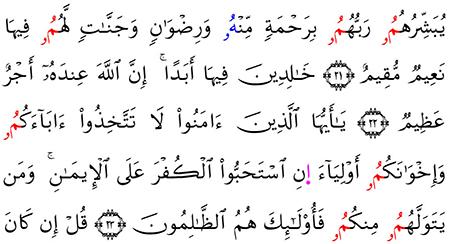 يُبَشِّرُهُمُۥ رَبُّهُمُۥ بِرَحْمَةٍ مِّنْهُۥ وَرِضْوَٰنٍ وَجَنَّـٰتٍ لَّهُمُۥ فِيهَا
نَعِيمٌ مُّقِيمٌ ۝٢١ خَـٰلِدِينَ فِيهَا أَبَدًا ۚ إِنَّ اللَّهَ عِندَهُۥٓ أَجْرٌ
عَظِيمٌ ۝٢٢ يَـٰٓأَيُّهَا الَّذِينَ ءَامَنُواْ لَا تَتَّخِذُواْ ءَابَآءَكُمُۥ
وَإِخْوَٰنَكُمُۥ أَوْلِيَآءَ اِنِ اسْتَحَبُّواْ الْكُفْرَ عَلَى الْإِيمَـٰنِ ۚ وَمَن
يَتَوَلَّهُمُۥ مِنكُمُۥ فَأُوْلَـٰٓئِكَ هُمُ الظَّـٰلِمُونَ ۝٢٣ قُلْ إِن كَانَ